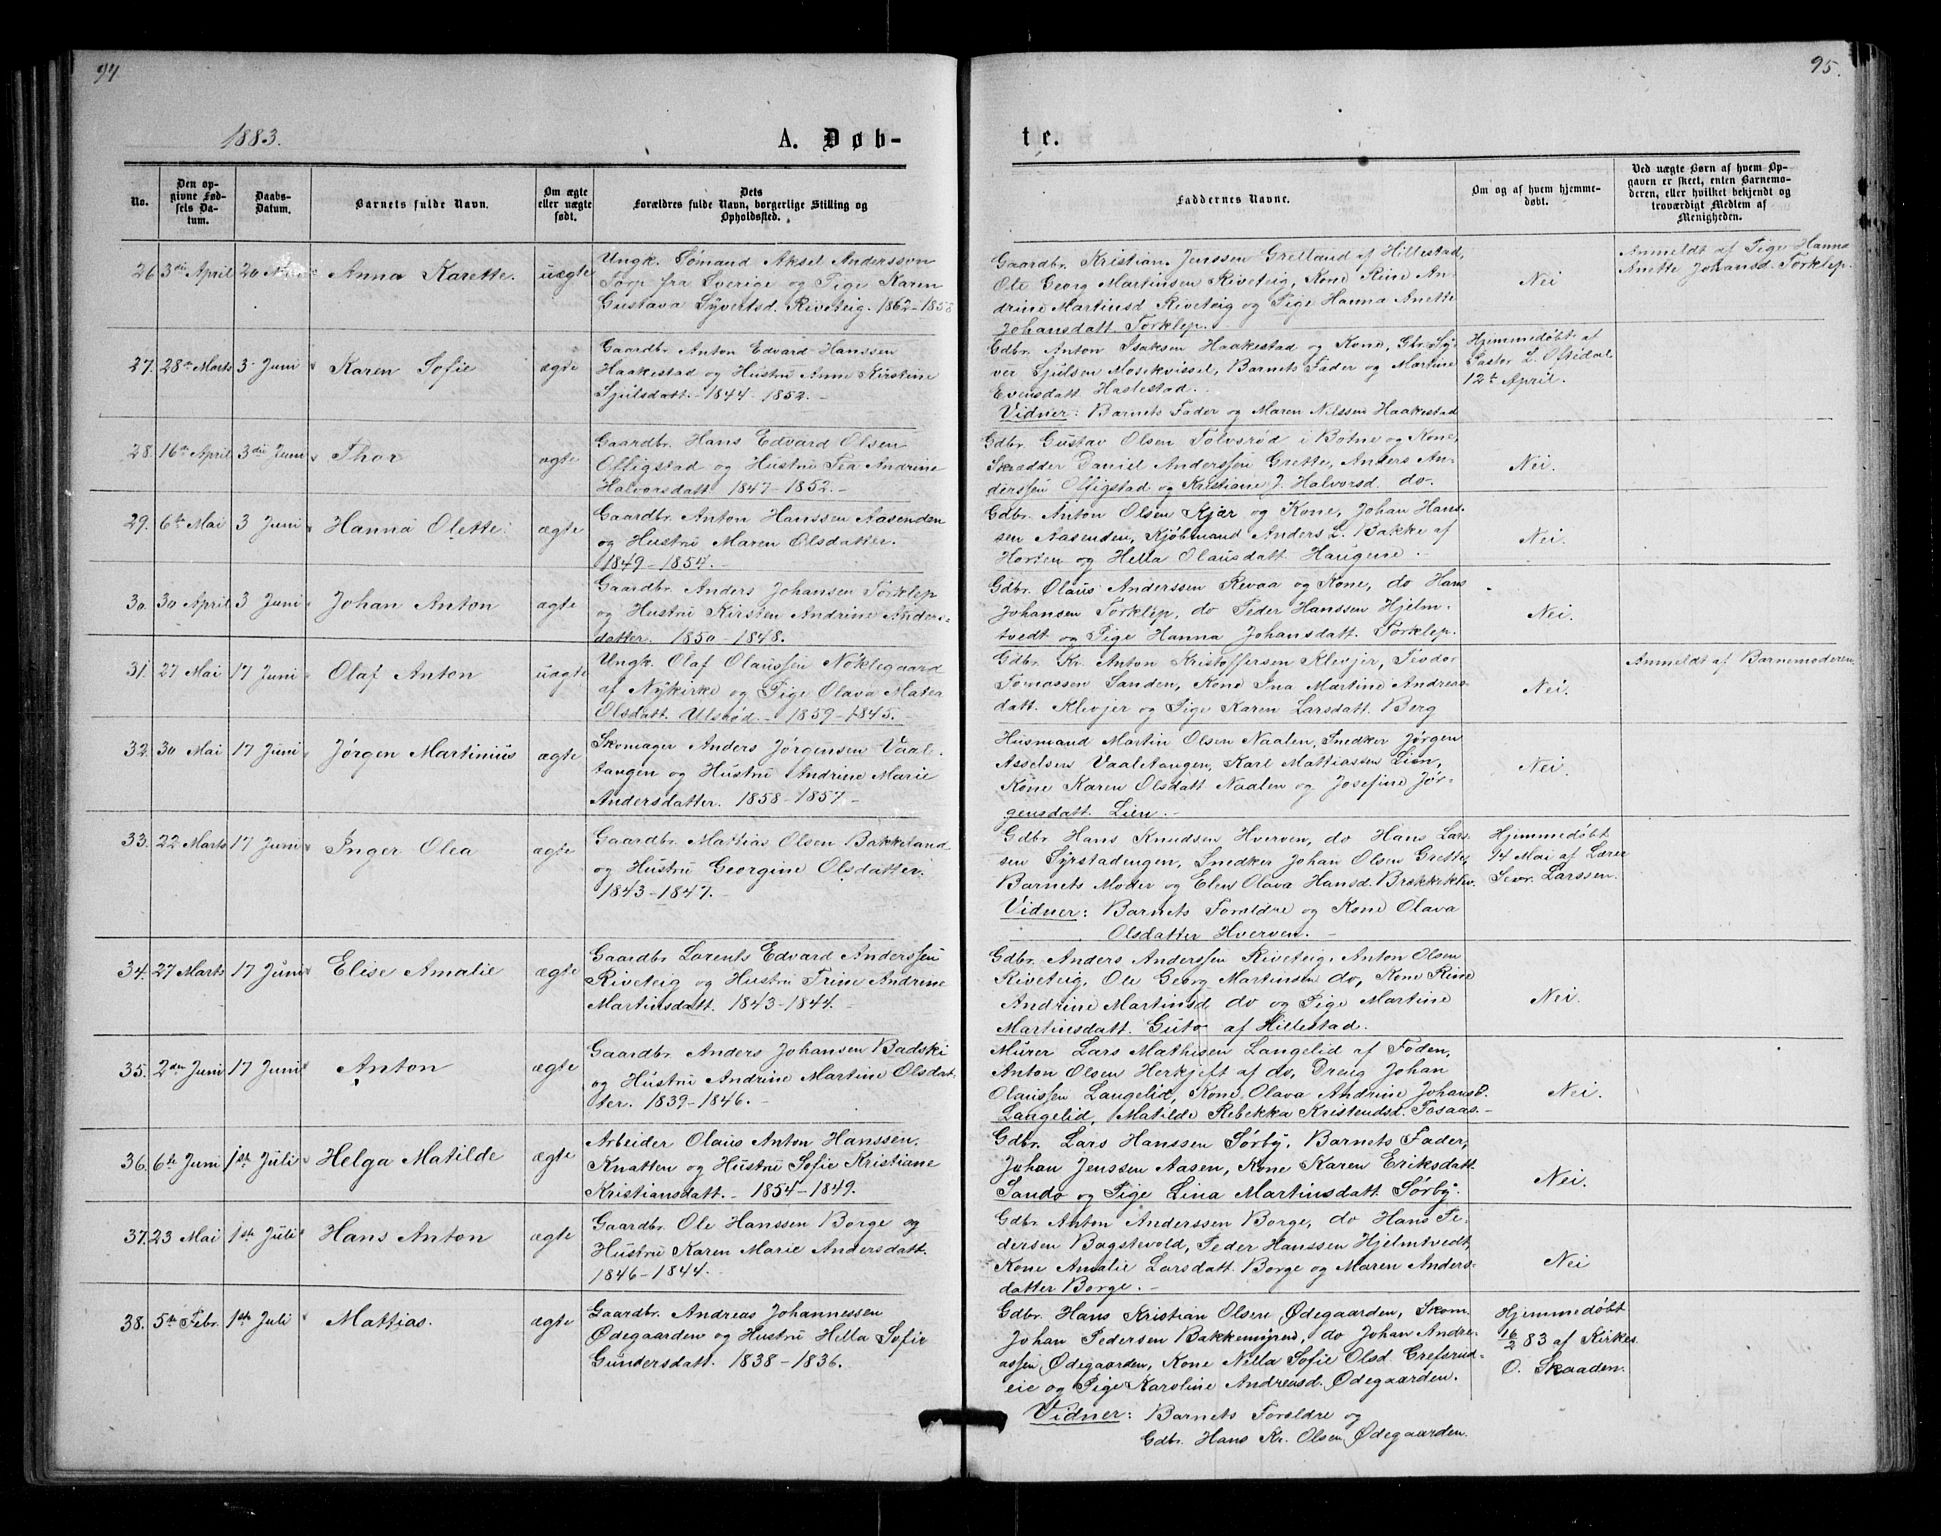 94
1883.
A. Døb-
No.
Den op-
givne Fød-
sels Da-
tum.
Daabs-
Datum.
Barnets fulde Navn.
Om ægte
eller uægte
født.
Dets
Forældres fulde Navn, borgerlige Stilling og
Opholdssted.
26 3die April 20 Anna Karette. uægte
Ungk. Sømand Aksel Andersson
Torp fra Sverige og Pige Karen
Gustava Syvertsd. Riveteig. 1862-1858
27. 28de Marts 3 Juni Karen Sofie ægte
Gaardbr. Anton Edvard Hanssen
Haakestad og Hustru Anne Kirstine
Sjulsdatt. - 1844 - 1852. -
28. 16de April 3die Juni Thor ægte
Gaardbr. Hans Edvard Olsen
Offigstad og Hustru Tea Andrine
Halvorsdatt. 1847 - 1852. -
29. 6te Mai 3 Juni Hanna Olette. ægte
Gaardbr. Anton Hanssen Aasenden
og Hustru Maren Olsdatter.
1849 - 1854. -
30. 30 April 3 Juni Johan Anton ægte
Gaardbr. Anders Johansen Torklep
og Hustru Kirsten Andrine Anders-
datter. 1850 - 1848. -
31. 27 Mai 17 Juni Olaf Anton uægte
Ungk. Olaf Olaussen Nøklegaard
af Nykirke og Pige Olava Matea
Olsdatt. Ulsrød. - 1859 - 1845.
32. 30 Mai 17 Juni Jørgen Martinius ægte
Skomager Anders Jørgensen Vaal-
tangen og Hustru Andrine Marie
Andersdatter. 1858 - 1857. -
33. 22 Marts 17 Juni Inger Olea ægte
Gaardbr. Mathias Olsen Bakkeland
og Hustru Georgine Olsdatter.
1843 - 1847. -
34. 27 Marts 17 Juni Elise Amalie ægte
Gaardbr. Lorents Edvard Anderssen
Riveteig og Hustru Trine Andrine
Martinsdatt. 1843 - 1844. -
35. 2den Juni 17 Juni Anton ægte
Gaardbr. Anders Johansen Badski
og Hustru Andrine Martine Olsdat-
ter. 1839 - 1846. -
36. 6te Juni 1ste Juli Helga Matilde ægte
Arbeider Olaus Anton Hanssen
Knatten og Hustru Sofie Kristiane
Kristiansdatt. - 1854 - 1849.
37. 23 Mai 1ste Juli Hans Anton ægte
Gaardbr. Ole Hanssen Borge og
Hustru Karen Marie Andersdatt.
1846 - 1844. -
38. 5te Febr. 1ste Juli Mathias. ægte
Gaardbr. Andreas Johannessen
Ødegaarden og Hustru Hella Sofie
Gundersdatt. 1838 - 1836. -
95.
te.
Faddernes Navne.
Om og af hvem hjemme-
døbt.
Ved uægte Børn af hvem Op-
gaven er skeet, enten Barnemo-
deren, eller hvilket bekjendt og
troværdigt Medlem af
Menigheden.
Gaardbr. Kristian Jenssen Grelland af Hillestad,
Ole Georg Martinsen Riveteig, Kone Rine An-
drine Martinsd. Riveteig og Pige Hanna Anette
Johansdatt. Torklep.
Nei
Anmeldt af Pige Hanna
Anette Johansd. Torklep.
Gdbr. Anton Isaksen Haakestad og Kone, Gbr. Sy-
ver Sjulsen Mosekvissel, Barnets Fader og Martine
Evensdatt. Haslestad. -
Vidner: Barnets Fader og Maren Nilssen Haakestad
Hjemmedøbt af
Pastor L. Oftedal
12te April.
Gdbr. Gustav Olsen Tolvsrød i Botne og Kone,
Skrædder Daniel Anderssen Grette, Anders An-
derssen Offigstad og Kristiane J. Halvorsd. do.
Nei.
Gdbr. Anton Olsen Kjær og Kone, Johan Hans-
sen Aasenden, Kjøbmand Anders L. Bakke af
Horten og Hella Olausdatt. Haugene. -
Nei.
Gdbr. Olaus Anderssen Revaa og Kone, do Hans
Johansen Torklep, do Peder Hanssen Hjelm-
tvedt og Pige Hanna Johansdatt. Torklep.
Nei.
Gdbr. Kr. Anton Kristoffersen Klevjer, Teodor
Tomassen Sanden, Kone Ina Martine Andreas-
datt. Klevjer og Pige Karen Larsdatt. Berg
Nei.
Anmeldt af Barnemoderen
Husmand Martin Olsen Naalen, Snedker Jørgen
Asselsen Vaaletangen, Karl Mattiassen Lien,
Kone Karen Olsdatt Naalen og Josefine Jør-
gensdatt. Lien. -
Nei.
Gdbr. Hans Knudsen Hverven, do Hans Lars-
sen Syrstadengen, Snedker Johan Olsen Grette,
Barnets Moder og Elen Olava Hansd.
Vidner: Barnets Forældre og Kone Olava
Olsdatter Hverven. -
Hjemmedøbt
14 Mai af Lærer
Larssen.
Gdbr. Anders Anderssen Riveteig, Anton Olsen
Riveteig, Ole Georg Martinsen do, Kone Rine
Andrine Martinsd. do og Pige Martine
Martinsdatt. Guto af Hillestad.
Nei.
Murer Lars Mathisen Langelid af Foden,
Anton Olsen Herkjeft af do, Dreng Johan
Olaussen Langelid, Kone Olava Andrine Johansd.
Langelid, Matilde Rebekka Kristendst. Fosaas. -
Nei.
Gdbr. Lars Hanssen Sørby, Barnets Fader,
Johan Jenssen Aasen, Kone Karen Eriksdatt.
Sando og Pige Lina Martinsdatt. Sørby.
Nei.
Gdbr. Anton Anderssen Borge, do Hans Pe-
dersen Bagstevold, Peder Hanssen Hjelmtvedt,
Kone Amalie Larsdatt. Borge og Maren Anders-
datter Borge. -
Nei
Gdbr. Hans Kristian Olsen Ødegaarden, Skom.
Johan Pedersen Bakkemyren, do Johan Andre-
assen Ødegaarden, Kone Nilla Sofie Olsd. Grefsrud-
eie og Pige Karoline Andreasd. Ødegaarden.
Vidner: Barnets Forældre og
Gdbr. Hans Kr. Olsen Ødegaarden.
Hjemmedøbt
16/2 83 af Kirkes.
O. Skaaden.